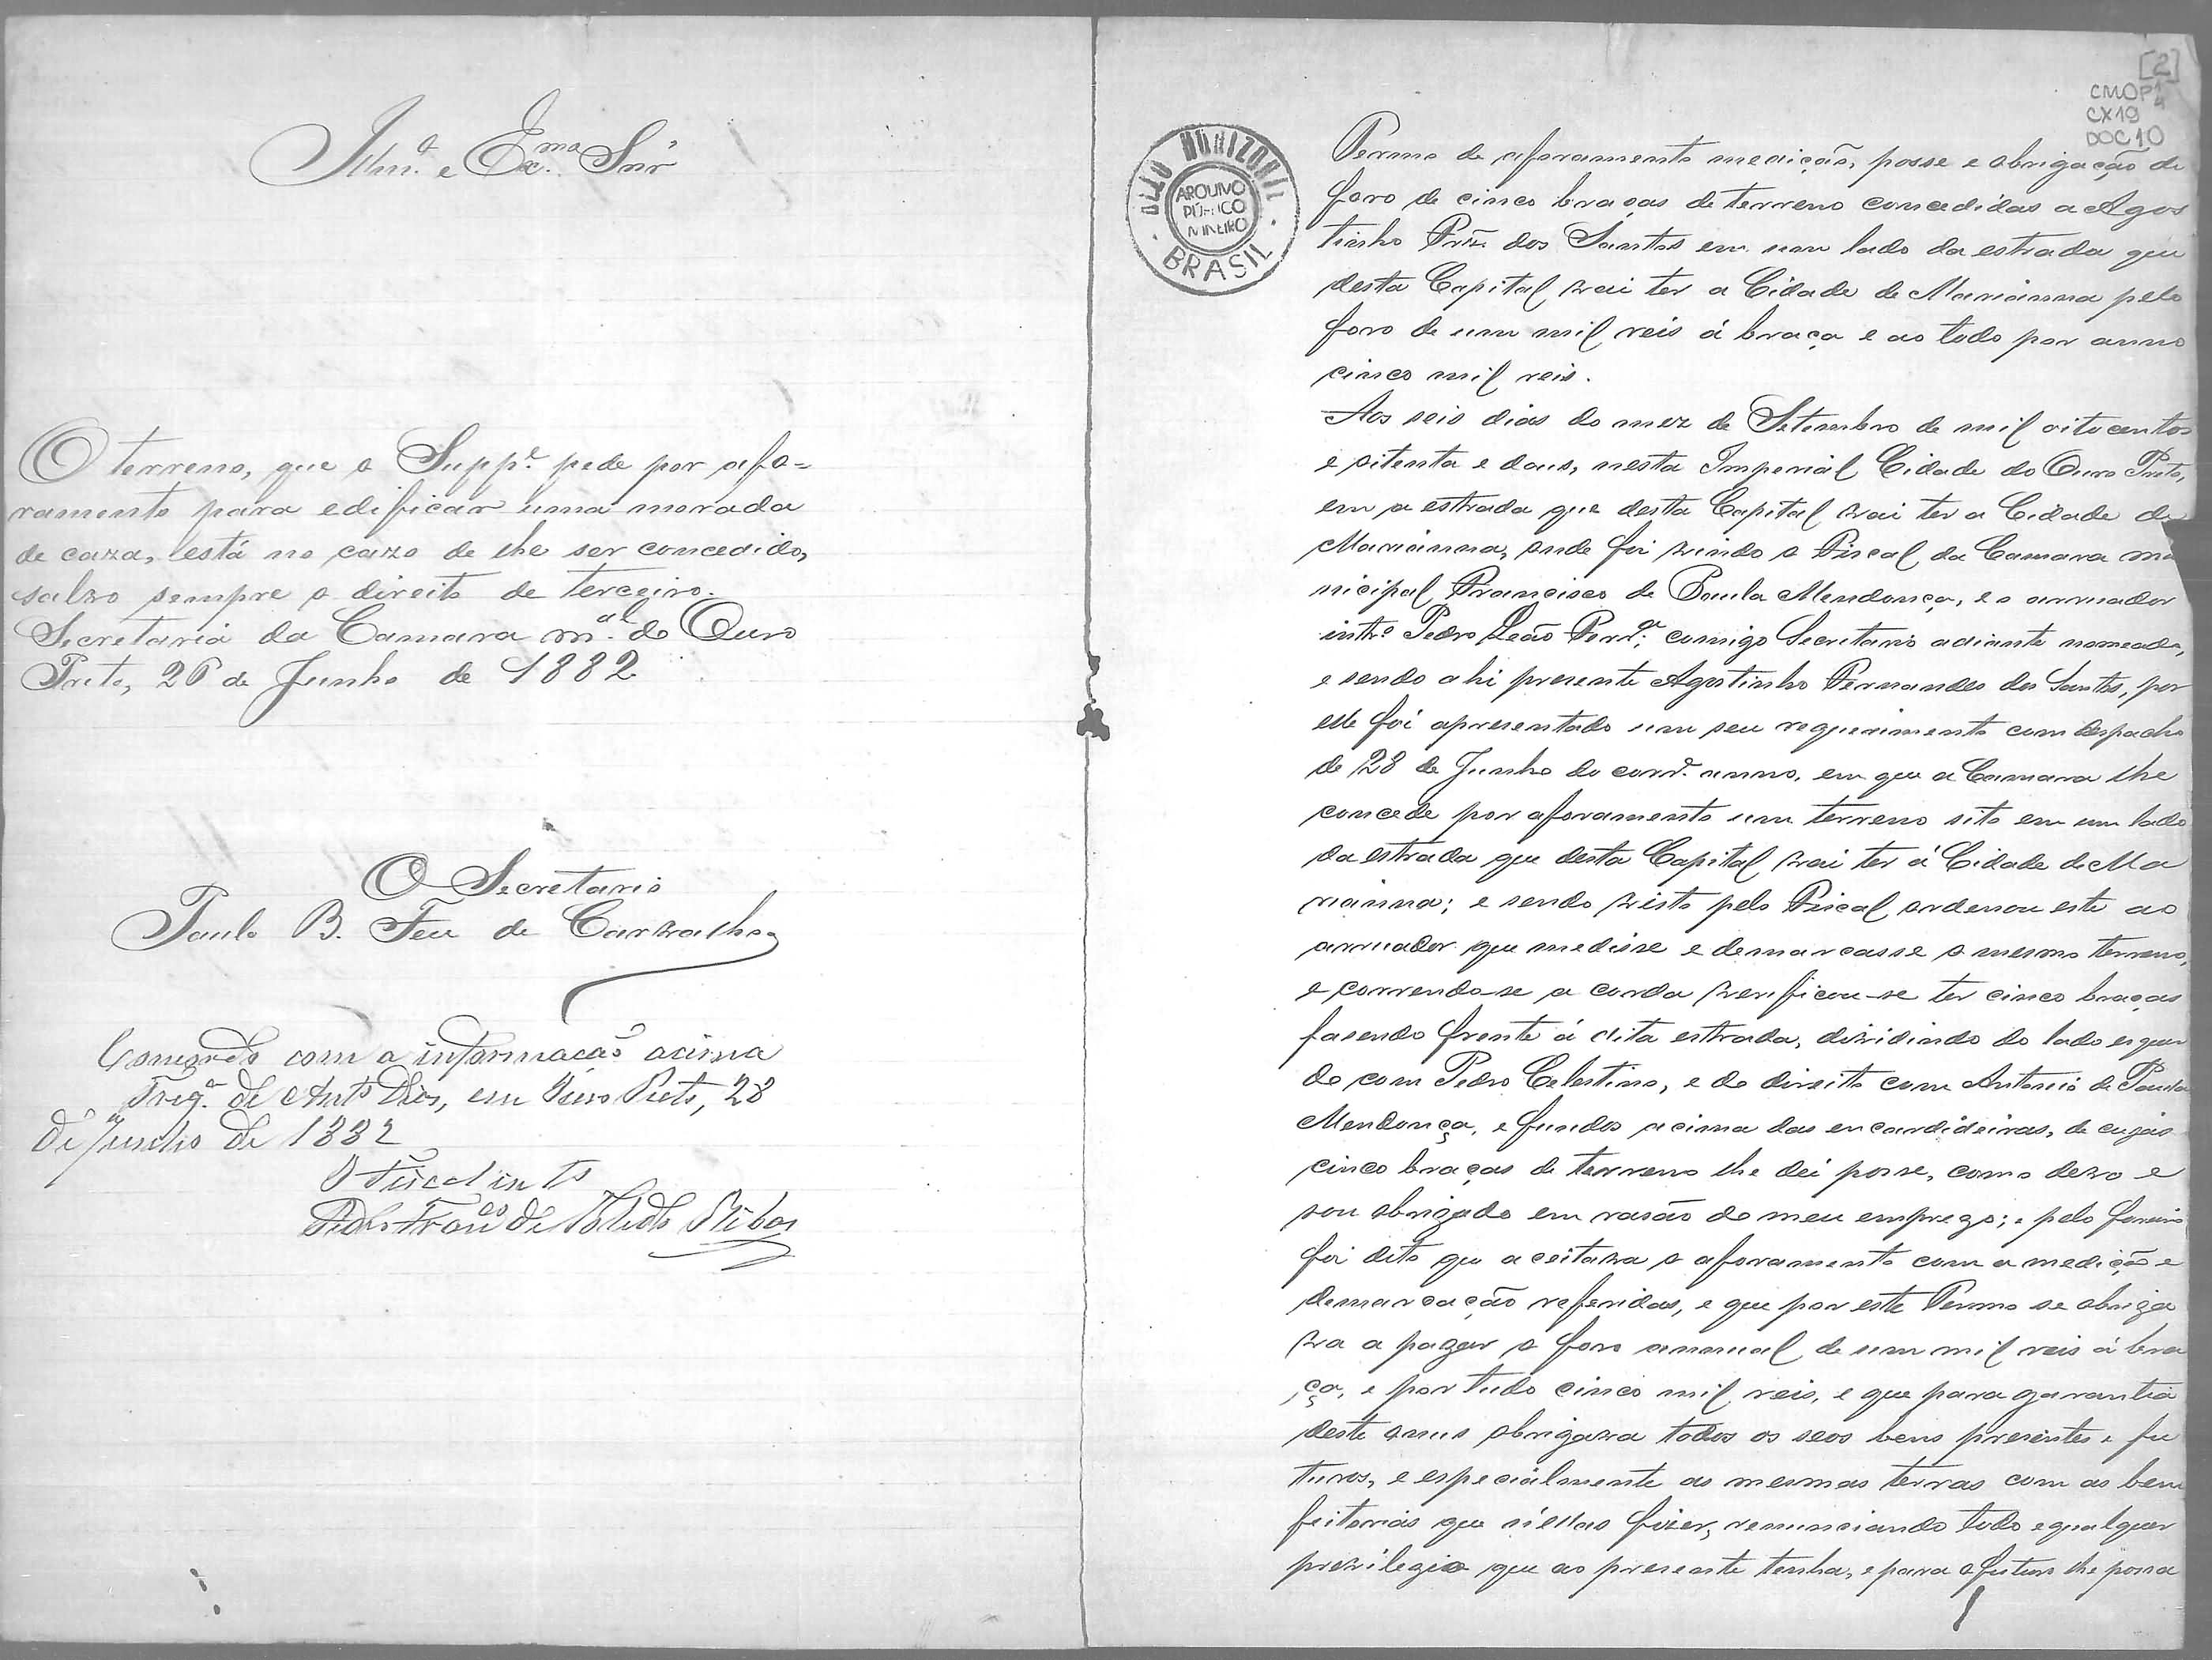 Illm.º e Ex.mo Snr
O terreno, que o Supp.e pede por afo=
ramento para edificar uma morada
de caza, está no cazo de lhe ser concedido,
salvo sempre o direito de terceiro.
Secretaria da Camara m.al do Ouro
Preto, 26 de Junho de 1882
O Secretario
Paulo B. Feu de Carvalho
Concordo com a informação acima
Freg.a de Ant.o Dias, em Ouro Preto, 28
de Junho de 1882
O Fiscal int.o
Fran.co de Toledo Ribas
[2]
CMOP 1/4
CX19
DOC 10
BELO HORIZONTE
ARQUIVO
PÚBLICO
MINEIRO
BRASIL
Termo de aforamento medição, posse e obrigação de
foro de cinco braças de terreno concedidas a Agos
tinho Frz. dos Santos em um lado da estrada que
desta Capital vai ter a Cidade de Marianna pelo
foro de um mil reis á braça e ao todo por anno
cinco mil reis.
Aos seis dias do mez de Setembro de mil oitocentos
e oitenta e dous, nesta Imperial Cidade do Ouro Preto,
em a estrada que desta Capital vai ter a Cidade de
Marianna, onde foi vindo o Fiscal da Camara mu
nicipal Francisco de Paula Mendonça, e o arruador
int.o Pedro Leão Ferr.a, comigo Secretario adiante nomeado,
e sendo ahi presente Agostinho Fernandes dos Santos, por
elle foi apresentado um seu requerimento com despacho
de 28 de Junho do corr.e anno, em que a Camara lhe
concede por aforamento um terreno sito em um lado
da estrada que desta Capital vai ter á Cidade de Ma
rianna; e sendo visto pelo Fiscal ordenou este ao
arruador que medisse e demarcasse o mesmo terreno,
e correndo-se a corda verificou-se ter cinco braças
fasendo frente á dita estrada, dividindo do lado esquer
do com Pedro Celestino, e do direito com Antonio de Paula
Mendonça, e fundos acima das encardideiras, de cujas
cinco braças de terreno lhe dei posse, como devo e
sou obrigado em rasão do meu emprego; e pelo foreiro
foi dito que aceitava o aforamento com a medição e
demarcação referidas, e que por este Termo se obriga
va a pagar o foro annual de um mil reis á bra
ça, e por tudo cinco mil reis, e que para garantia
deste onus obrigava todos os seos bens presentes e fu
turos, e especialmente as mesmas terras com as bem
feitorias que n'ellas fizer, renunciando todo e qualquer
previlegio que ao presente tenha, e para o futuro lhe possa